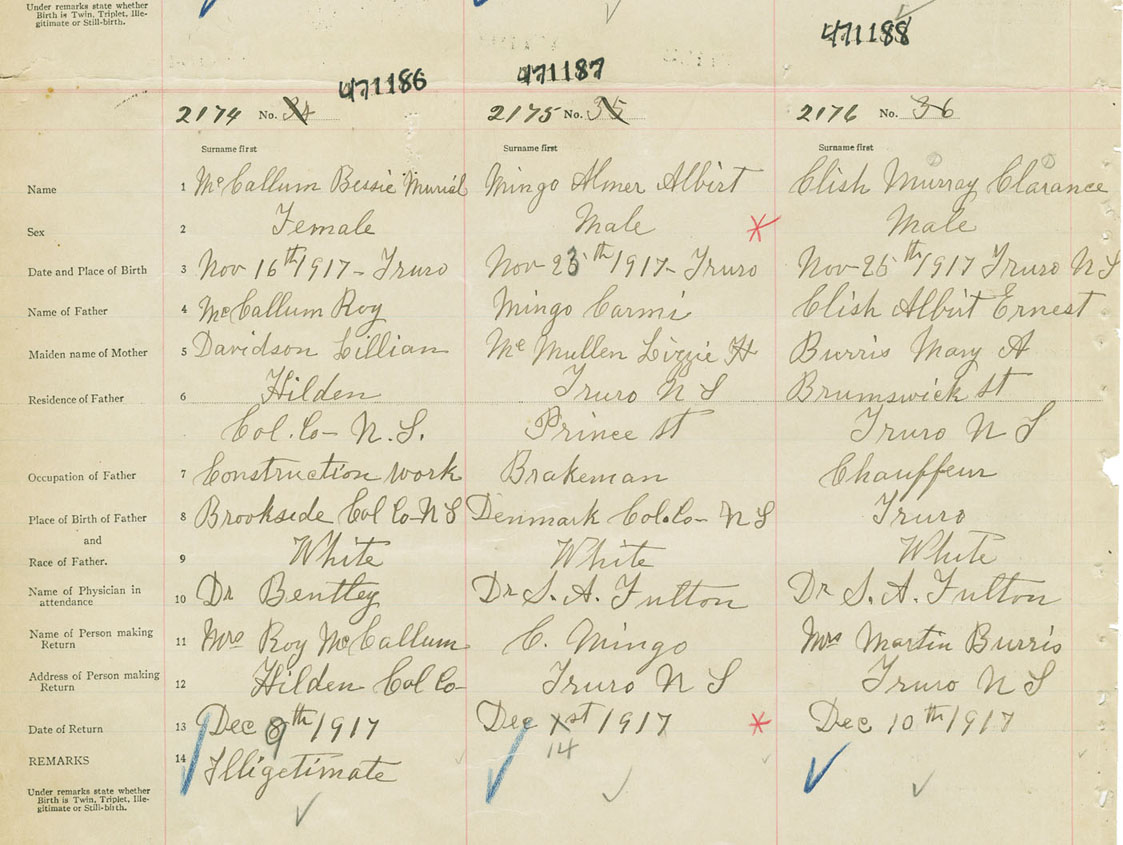 Under remarks state whether
Birth is Twin, Triplet, Ille-
gitimate or Still-birth.
471186 471187 471188
2174 No. 34 2175 No. 35 2176 No. 36
Surname first Surname first Surname first
Name 1 McCallum Bessie Murial Mingo Almer Albirt Clish Murray Clarance
Sex 2 Female Male Male
Date and Place of Birth 3 Nov 16th 1917 - Truro Nov 23th 1917 - Truro Nov 25th 1917 Truro N S
Name of Father 4 McCallum Roy Mingo Carmi Clish Albirt Ernest
Maiden name of Mother 5 Davidson Lillian McMullen Lizzie H Burris Mary A
Residence of Father 6 Hilden Truro N S Brumswick St
Col. Co - N. S. Prince St Truro N S
Occupation of Father 7 Construction work Brakeman Chauffeur
Place of Birth of Father 8 Brookside Col Co - N S Denmark Col. Co - N S Truro
and
Race of Father. 9 White White White
Name of Physician in
attendance 10 Dr Bentley Dr S. A. Fulton Dr S. A. Fulton
Name of Person making
Return 11 Mrs Roy McCallum C. Mingo Mrs Martin Burris
Address of Person making
Return 12 Hilden Col Co - Truro N S Truro N S
Date of Return 13 Dec 9th 1917 Dec 1st 1917 Dec 10th 1917
14
REMARKS 14 Illigetimate
Under remarks state whether
Birth is Twin, Triplet, Ille-
gitimate or Still-birth.